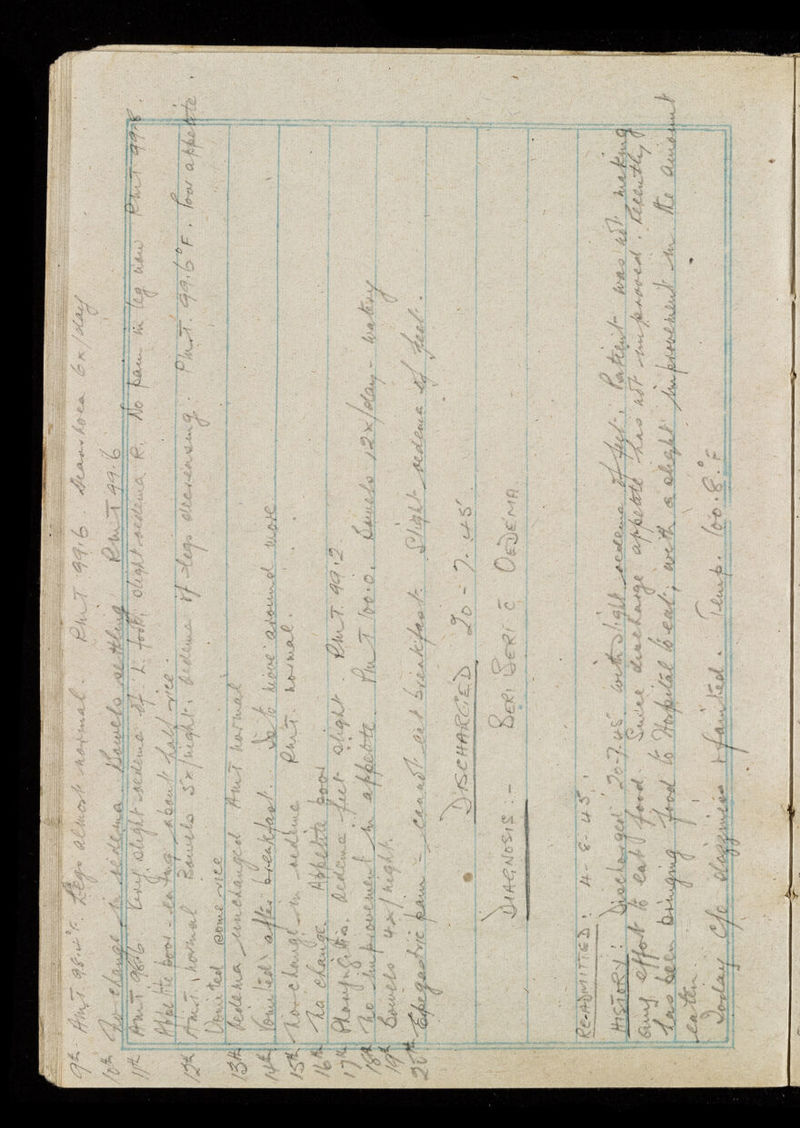 9th. Am T. 98.4°F. Legs almost normal. Pm T 99.6. Diarrhoea 6x/day
10th No change in oedema Bowels settling Pm T 99.6
11th Am T 98.6 Very slight oedema of L. foot, slight oedema R. No pain in leg now Pm T 99.8.
Appetite poor - eating about half rice.
12th Am T. normal Bowels 5x/night. Oedema of legs decreasing. Pm T. 99.6°F. Poor appetite.
Vomited some rice
13th Oedema unchanged Am T normal
14th Vomited after breakfast. Is to move around more
15th No change in oedema Pm T. normal.
16th No change. Appetite poor
17th Pharyngitis. Oedema feet slight. Pm T. 99.2
18th No improvement in appetite. Pm T 100.0. Bowels 12x/day - watery
19th Bowels 4x/night.
20th Epigastric pain - cannot eat breakfast. Slight oedema of feet.
DISCHARGED 20-7-45.
DIAGNOSIS:- BERI BERI c̄ OEDEMA
RE-ADMITTED: 4-8-45.
HISTORY: Discharged 20-7-45 with slight oedema of feet. Patient was not making
any effort to eat food. Since discharge appetite has not improved. Recently
has been bringing food to Hospital to eat; with a slight improvement in the amount
eaten.
Today c/o dizziness & fainted. Temp. 100.8°F